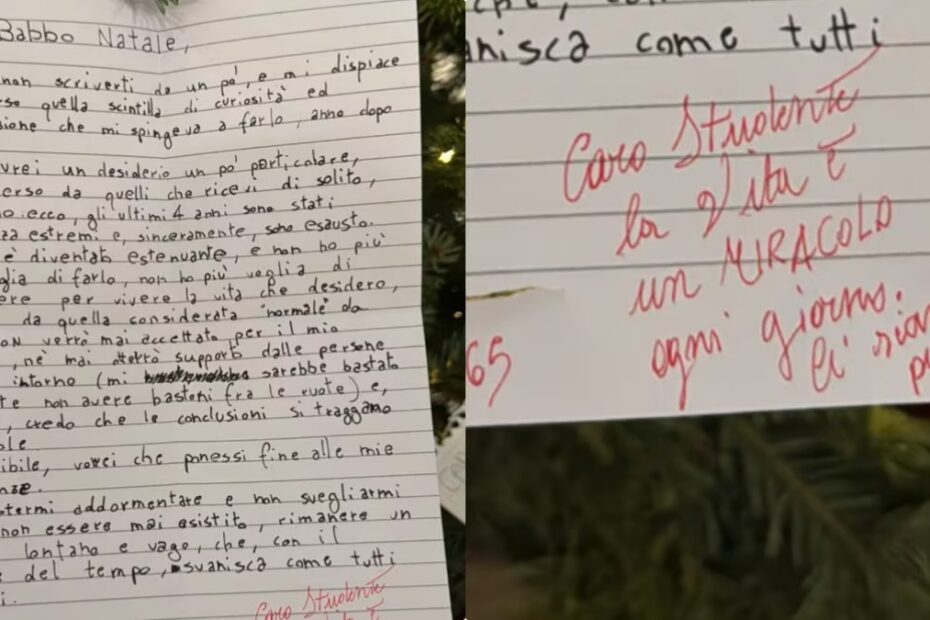 Babbo Natale,
non scriverti da un po', e mi dispiace
so quella scintilla di curiosità ed
sione che mi spingeva a farlo, anno dopo
vrei un desiderio un po' particolare,
erso da quelli che ricevi di solito,
o. ecco, gli ultimi 4 anni sono stati
za estremi e, sinceramente, sono esausto.
è diventato estenuante, e non ho più
glia di farlo, non ho più voglia di
ere per vivere la vita che desidero,
da quella considerata "normale" da
on verrò mai accettato per il mio
, nè mai otterrò supporto dalle persone
intorno (mi sarebbe bastato
te non avere bastoni fra le ruote) e,
, credo che le conclusioni si traggano
ole
ibile, vorrei che ponessi fine alle mie
nze.
termi addormentare e non svegliarmi
non essere mai esistito, rimanere un
lontano e vago, che, con il
del tempo, svanisca come tutti
i.
Caro Studente
anisca come tutti
Caro Studente
la Vita è
un MIRACOLO
ogni giorno.
65